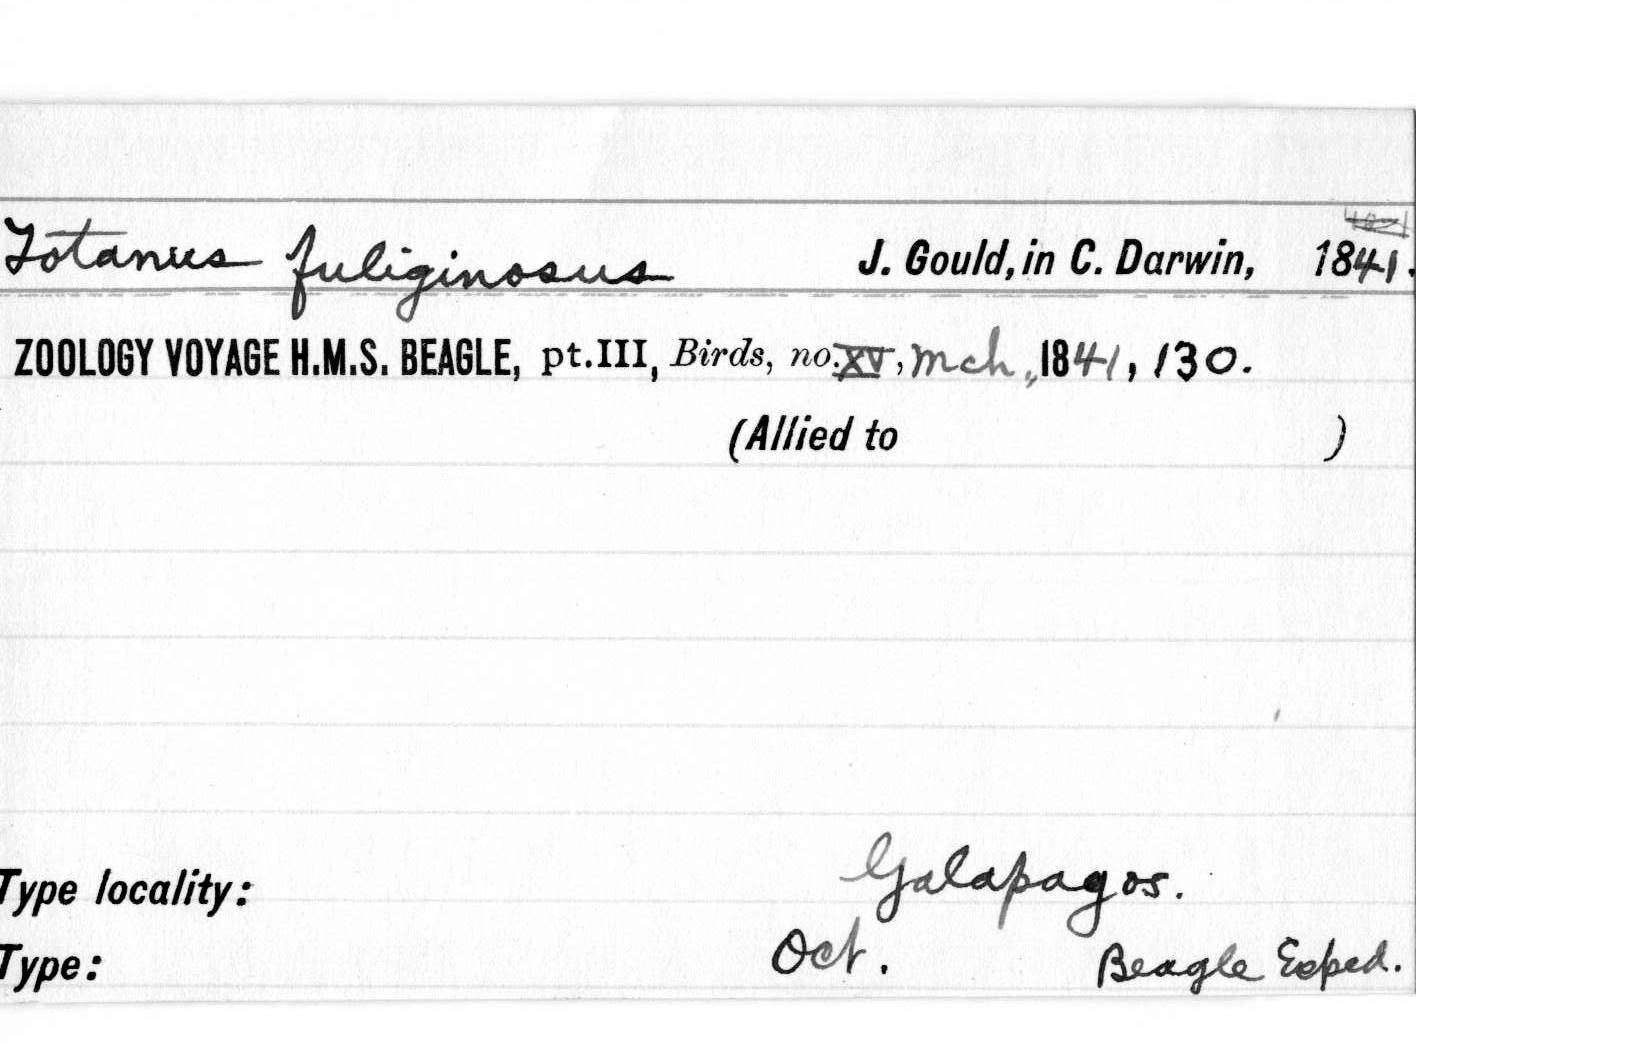 Totanus fuliginosus J. Gould, in C. Darwin, 1841.
ZOOLOGY VOYAGE H.M.S. BEAGLE, pt.III, Birds, no.XV, Mch., 1841, 130.
(Allied to )
Type locality: Galapagos.
Type: Oct. Beagle Exped.